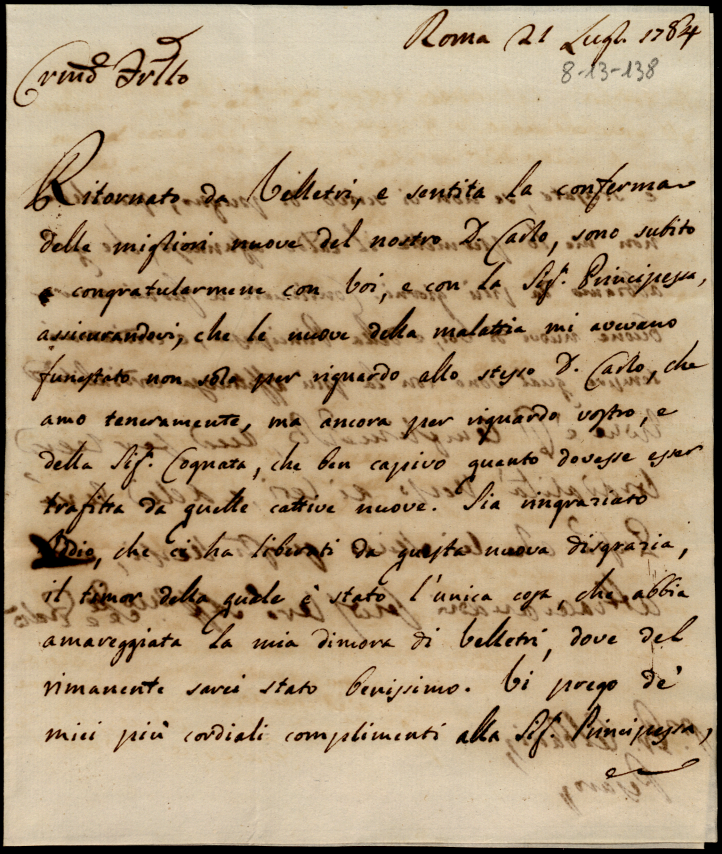 Roma 21 Lugl. 1784
8-13-138
Crmō Frllo
Ritornato da Velletri, e sentita la conferma
delle migliori nuove del nostro D. Carlo, sono subito
a congratularmene con Voi, e con la Sigˢ. Principessa,
assicurandovi, che le nuove della malattia mi avevano
funestato non solo per riguardo allo stesso D. Carlo, che
amo teneramente, ma ancora per riguardo vostro, e
della Sigˢ. Cognata, che ben capivo quanto dovesse esser
trafitta da quelle cattive nuove. Sia ringraziato
Iddio, che ci ha liberati da questa nuova disgrazia,
il timor della quale è stato l'unica cosa, che abbia
amareggiata la mia dimora di Velletri, dove del
rimanente sarei stato benissimo. Vi prego de'
miei più cordiali complimenti alla Sigˢ. Principessa,